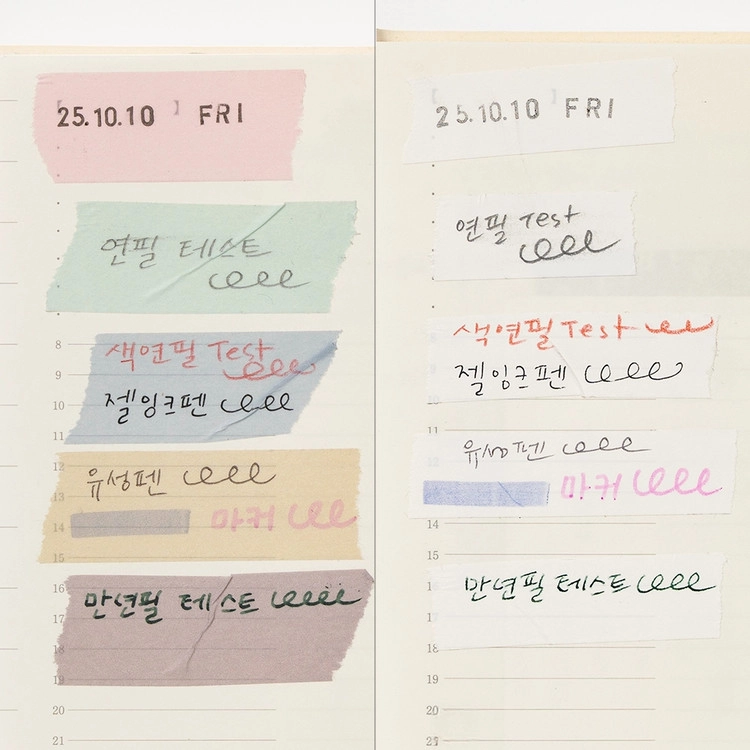 25.10.10 FRI
연필 테스트
8 색연필 Test
9
10 젤잉크펜
11
12 유성펜
13
14 마커
15
16 만년필 테스트
17
18
19
20
21
25.10.10 FRI
연필 Test
색연필 Test
9 젤잉크펜
10
11
유성펜
마커
14
15
16 만년필 테스트
17
18
19
20
21